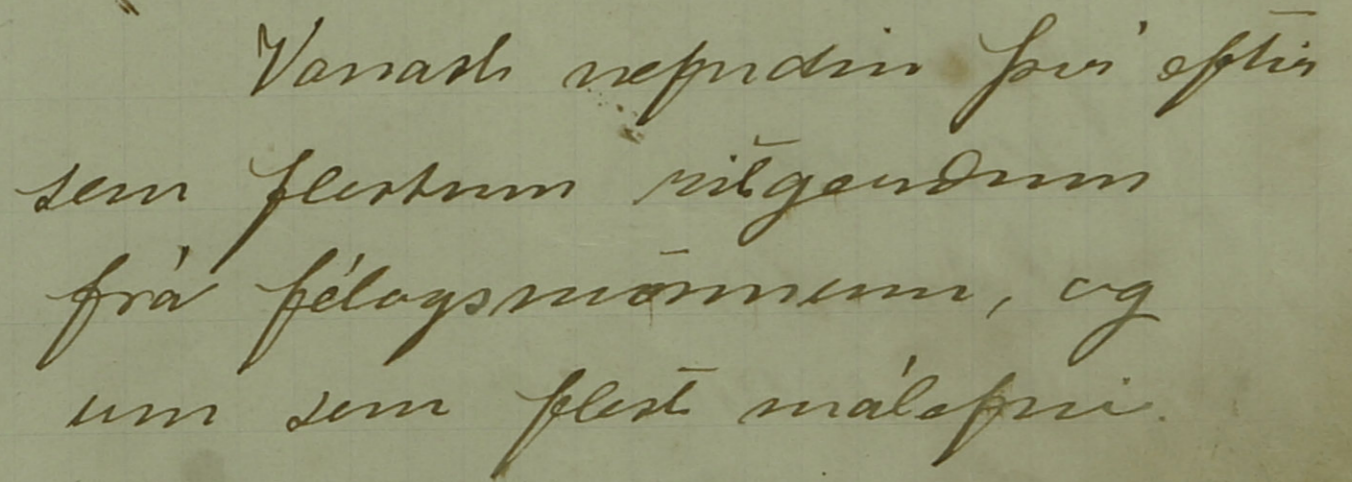 Vonast nefndin því eftir
sem flestum ritgerdum
frá félagsmönnum, og
um sem flest málefni.